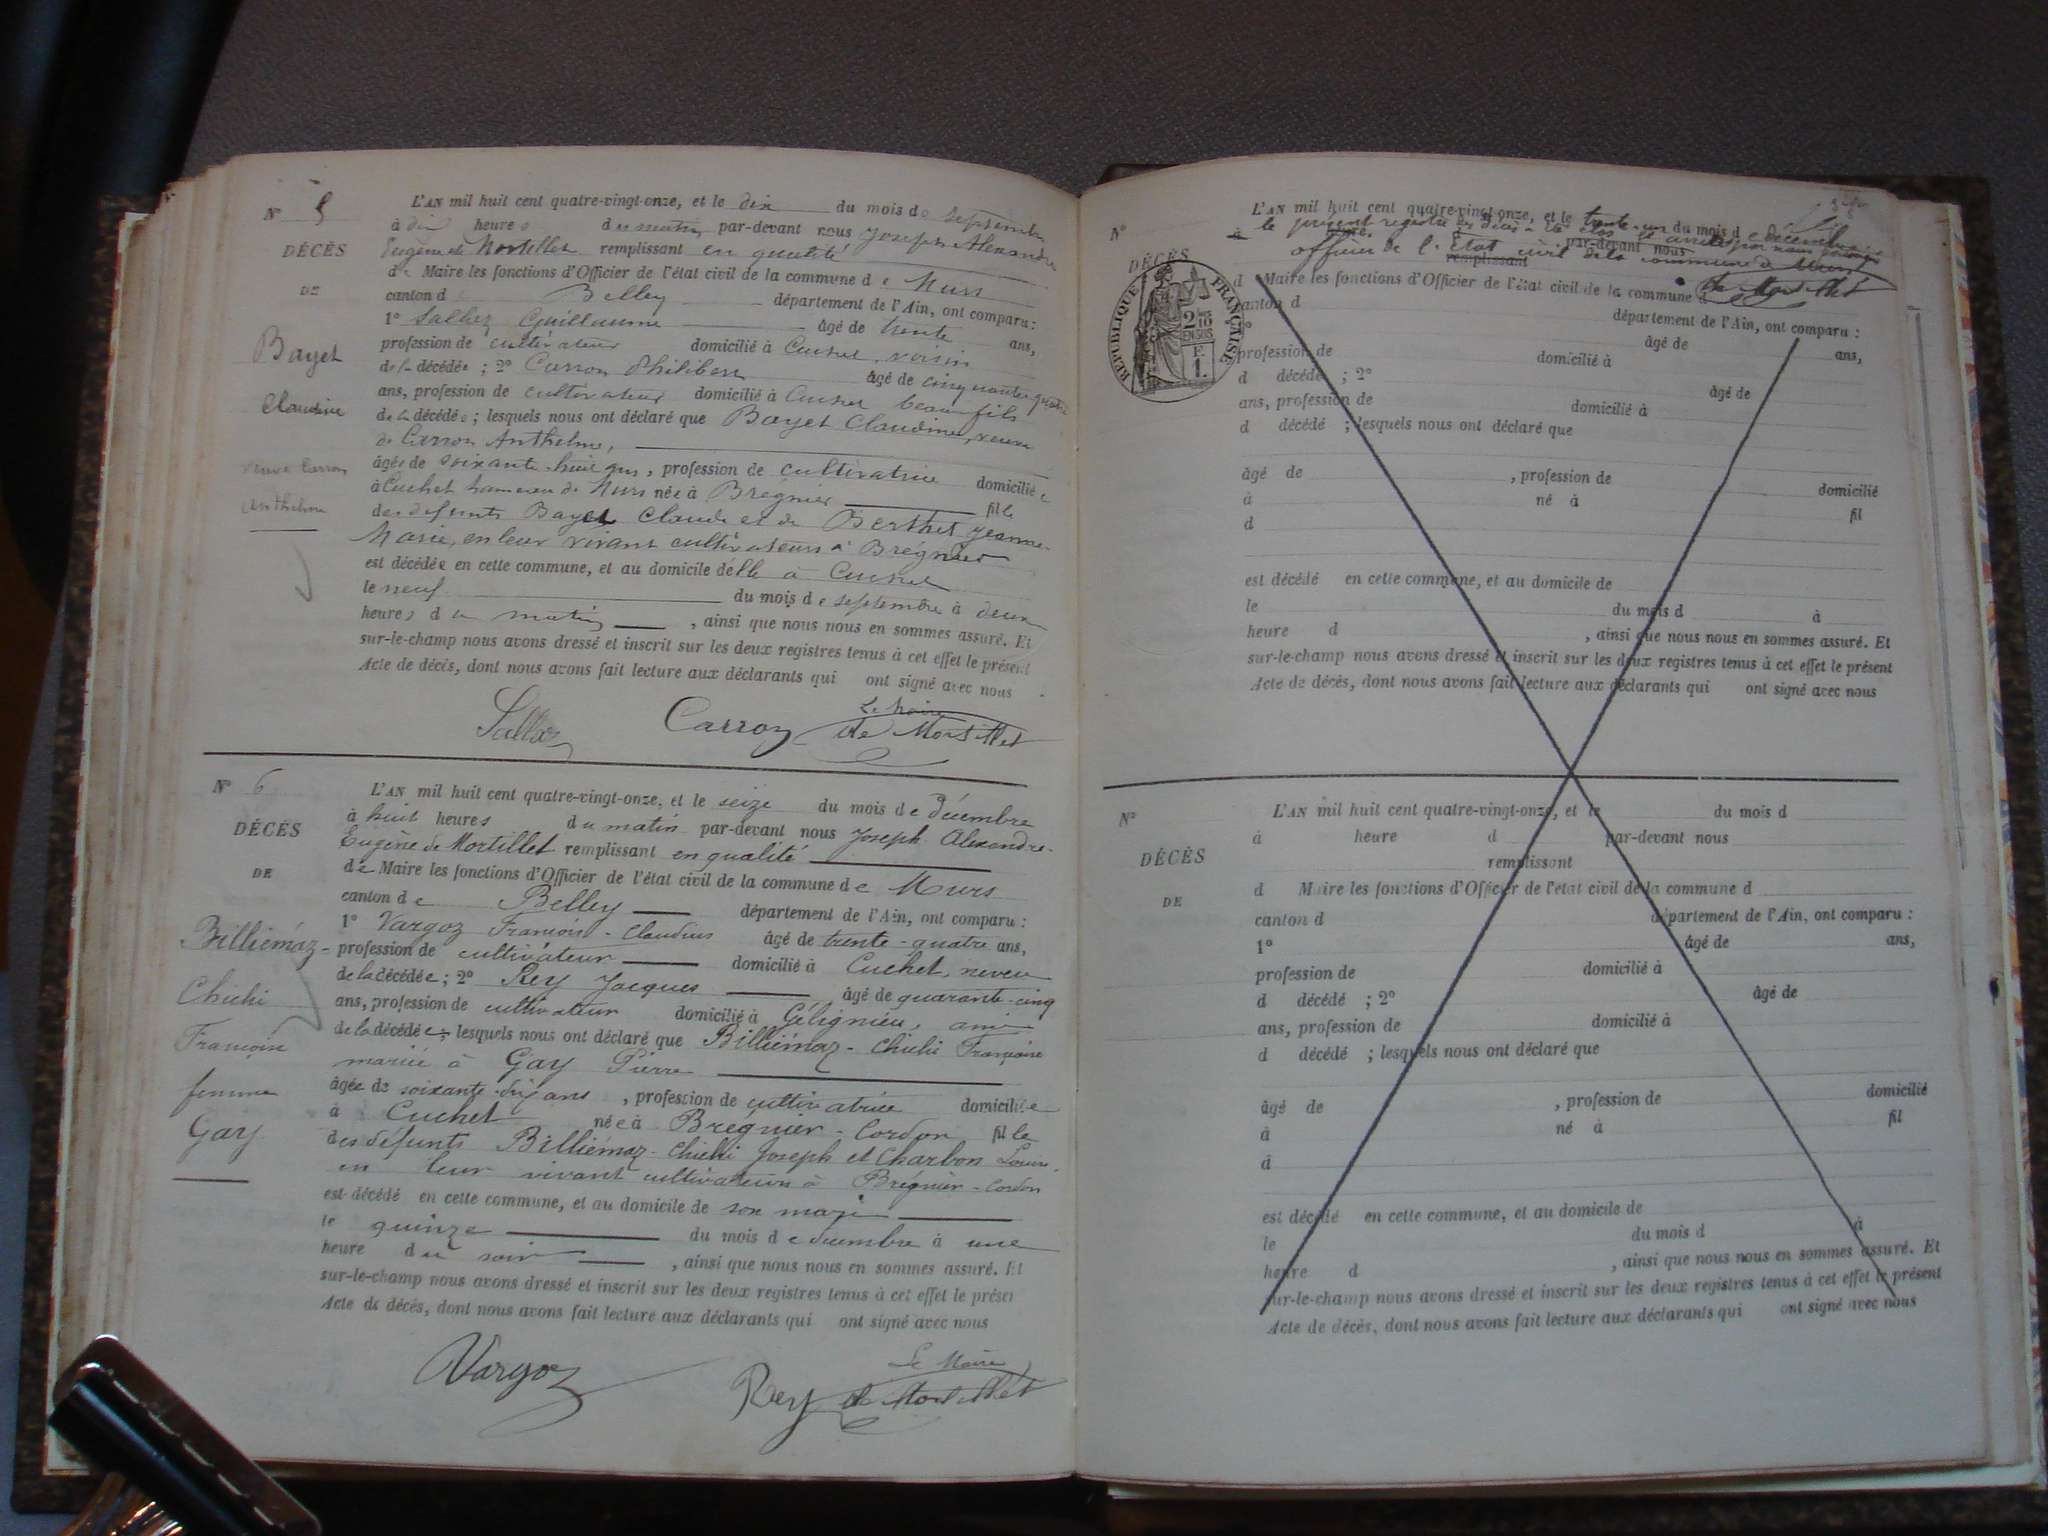 N° 5
DÉCÈS
DE
Bayet
Claudine
veuve Carron
Anthelme
L'AN mil huit cent quatre-vingt-onze, et le dix du mois de septembre
à dix heures du matin par-devant nous Joseph Alexandre
Eugène de Mortillet remplissant en qualité
de Maire les fonctions d'Officier de l'état civil de la commune de Murs
canton de Belley département de l'Ain, ont comparu :
1° Sallez Guillaume âgé de trente ans,
profession de cultivateur domicilié à Cuchet, voisin
de la décédée ; 2° Carron Philibert âgé de cinquante quatre
ans, profession de cultivateur domicilié à Cuchet beau-fils
de la décédée ; lesquels nous ont déclaré que Bayet Claudine, veuve
de Carron Anthelme,
âgée de soixante-huit ans, profession de cultivatrice domiciliée
à Cuchet hameau de Murs née à Brégnier fille
des défunts Bayet Claude et de Berthet Jeanne-
Marie, en leur vivant cultivateurs à Brégnier
est décédée en cette commune, et au domicile delle à Cuchet
le neuf du mois de septembre à deux
heures du matin, ainsi que nous nous en sommes assuré. Et
sur-le-champ nous avons dressé et inscrit sur les deux registres tenus à cet effet le présent
Acte de décès, dont nous avons fait lecture aux déclarants qui ont signé avec nous
Le Maire
Carron de Mortillet
N° 6
DÉCÈS
DE
Billiémaz-
Chichi
Françoise
femme
Gay
L'AN mil huit cent quatre-vingt-onze, et le seize du mois de décembre
à huit heures du matin par-devant nous Joseph Alexandre-
Eugène de Mortillet remplissant en qualité
de Maire les fonctions d'Officier de l'état civil de la commune de Murs
canton de Belley département de l'Ain, ont comparu :
1° Vargoz François-Claudius âgé de trente-quatre ans,
profession de cultivateur domicilié à Cuchet, neveu
de la décédée ; 2° Rey Jacques âgé de quarante-cinq
ans, profession de cultivateur domicilié à Gélignieu, ami
de la décédée ; lesquels nous ont déclaré que Billiémaz-Chichi Françoise
mariée à Gay Pierre
âgée de soixante-dix ans, profession de cultivatrice domiciliée
à Cuchet née à Brégnier-Cordon fille
des défunts Billiémaz-Chichi Joseph et Charbon Louise,
en leur vivant cultivateurs à Brégnier-Cordon
est décédé en cette commune, et au domicile de son mari
le quinze du mois de décembre à une
heure du soir, ainsi que nous nous en sommes assuré. Et
sur-le-champ nous avons dressé et inscrit sur les deux registres tenus à cet effet le présent
Acte de décès, dont nous avons fait lecture aux déclarants qui ont signé avec nous
Le Maire
Vargoz Rey de Mortillet
N°
DÉCÈS
RÉPUBLIQUE FRANÇAISE
2/10 EN SUS
F.
1.
L'AN mil huit cent quatre-vingt-onze, et le trente-un du mois de décembre
le présent registre des décès a été clos et arrêté par nous
officier de l'État civil de la commune de Murs
par-devant nous
remplissant
de Mortillet
d Maire les fonctions d'Officier de l'état civil de la commune d
canton d département de l'Ain, ont comparu :
1° âgé de ans,
profession de domicilié à
d décédé ; 2° âgé de
ans, profession de domicilié à
d décédé ; lesquels nous ont déclaré que
âgé de , profession de domicilié
à né à fil
d
est décédé en cette commune, et au domicile de
le du mois d à
heure d , ainsi que nous nous en sommes assuré. Et
sur-le-champ nous avons dressé et inscrit sur les deux registres tenus à cet effet le présent
Acte de décès, dont nous avons fait lecture aux déclarants qui ont signé avec nous
N°
DÉCÈS
DE
L'AN mil huit cent quatre-vingt-onze, et le du mois d
à heure d par-devant nous
remplissant
d Maire les fonctions d'Officier de l'état civil de la commune d
canton d département de l'Ain, ont comparu :
1° âgé de ans,
profession de domicilié à
d décédé ; 2° âgé de
ans, profession de domicilié à
d décédé ; lesquels nous ont déclaré que
âgé de , profession de domicilié
à né à fil
d
est décédé en cette commune, et au domicile de
le du mois d à
heure d , ainsi que nous nous en sommes assuré. Et
sur-le-champ nous avons dressé et inscrit sur les deux registres tenus à cet effet le présent
Acte de décès, dont nous avons fait lecture aux déclarants qui ont signé avec nous